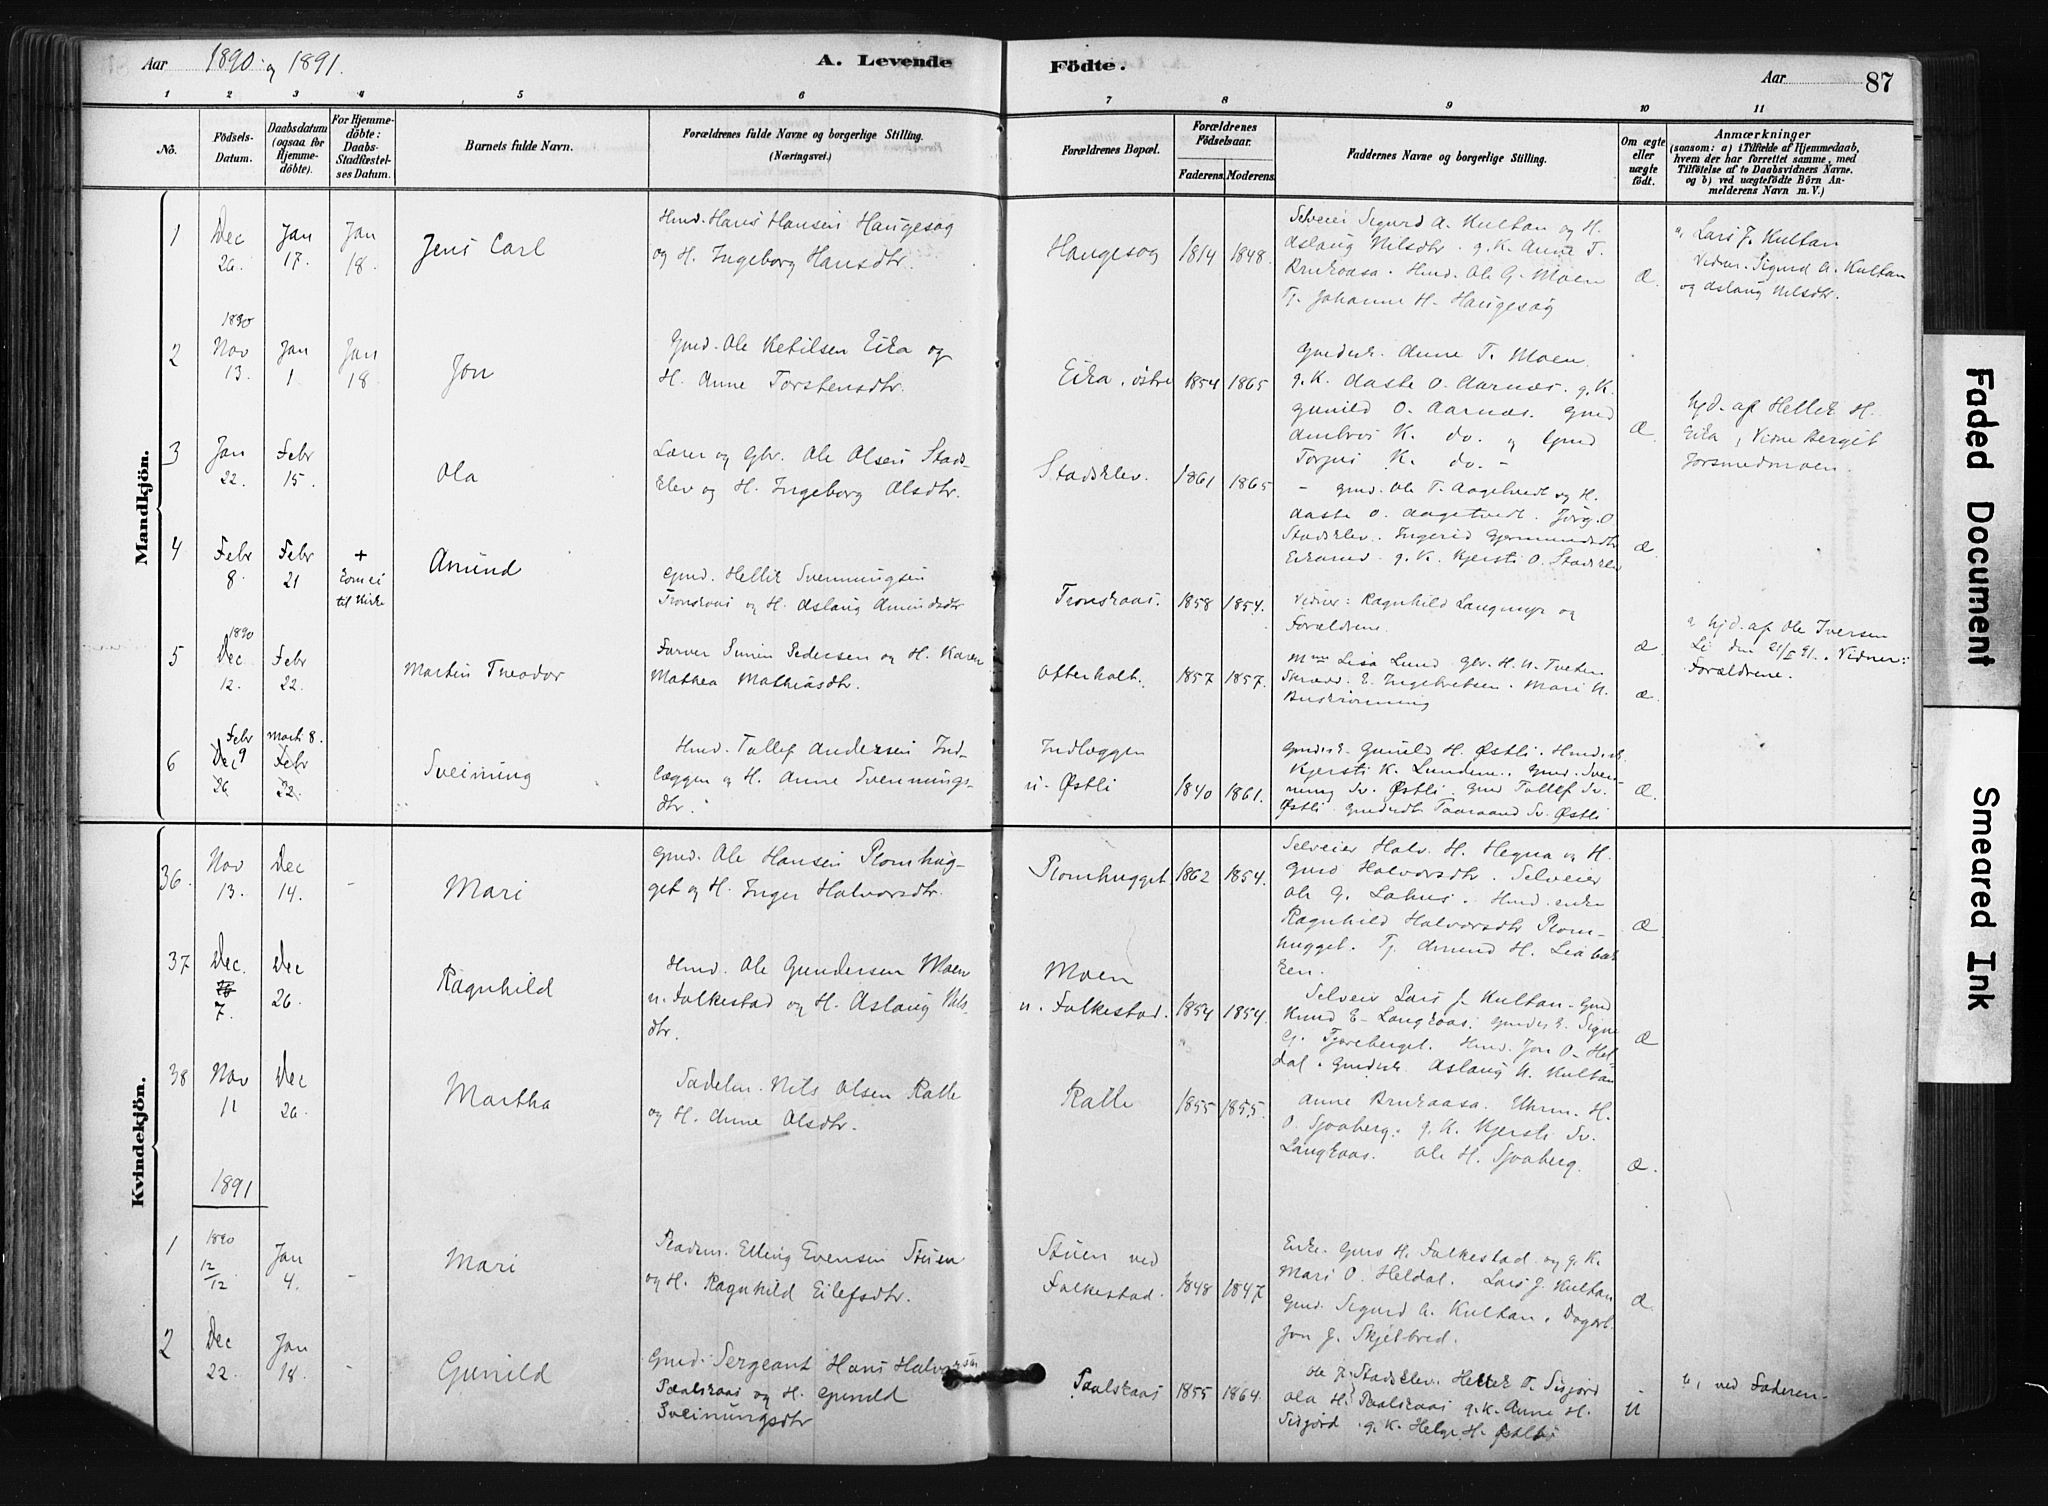 Aar 1890 og 1891.
A. Levende Födte.
Aar 87
1 2 3 4 5 6 7 8 9 10 11
No.
Födsels-Datum.
Daabsdatum (ogsaa for Hjemmedöbte).
For Hjemmedöbte: Daabs-Stadfæstelses Datum.
Barnets fulde Navn.
Forældrenes fulde Navne og borgerlige Stilling. (Næringsvei.)
Forældrenes Bopæl.
Forældrenes Födselsaar.
Faderens. Moderens.
Faddernes Navne og borgerlige Stilling.
Om ægte eller uægte födt.
Anmærkninger
(saasom: a) i Tilfælde af Hjemmedaab,
hvem der har forrettet samme, med
Tilföielse af to Daabsvidners Navne.
og b) ved uægtefödte Börn Anmelderens Navn m. V.)
Mandkjön.
1 Dec 26. Jan 17. Jan 18. Jens Carl
Hmd. Hans Hansen Haugesag
og H. Ingeborg Hansdtr.
Haugesag 1814 1848.
Selveier Sigurd A. Kultan og H.
Aslaug Nilsdtr. g. K. Anne T.
Brukaasa. Hmd. Ole G. Moen
Tj. Johanne H. Haugesag
Æ.
a, Lars J. Kultan
Vidner. Sigurd A. Kultan
og Aslaug Nilsdtr.
2 1890 Nov 13. Jan 1. Jan 18. Jon
Gmd. Ole Ketilsen Eika og
H. Anne Torstensdtr.
Eika, östre 1854 1865
Gmdsk. Anne T. Moen.
g. K. Aaste O. Aarnæs. g. K.
Gunild O. Aarnæs. Gmd
Ambros K. do. og Gmd
Torjus K. do. -
Æ.
hjd. af Hellik H.
Eika, Vidne Bergit
Jorsmedmoen.
3 Jan 22. Febr 15. Ola
Lærer og Gbr. Ole Olsen Stads-
klev og H. Ingeborg Olsdtr.
Stadsklev. 1861 1865
- Gmd. Ole T. Aagetvedt og H.
Aaste O. Aagetvedt. Jörg. O
Stadsklev. Ingerid Gjermundsdtr
Eikamo. g. K. Kjersti O. Stadsklev
Æ.
4 Febr 8. Febr 21 + kom ei til Kirke
Amund
Gmd. Hellik Svenningsen
Tronskaas og H. Aslaug Amundsdtr
Tronskaas. 1858 1854.
Vidner: Ragnhild Langmyr og
Forældrene.
Æ
a hjd. af Ole Iversen
Li den 21/2 91. Vidner:
Forældrene.
5 1890 Dec 12. Febr 22. Martin Theodor
Farver Simen Pedersen og H. Karen
Mathea Mathiasdtr.
Ofterholt. 1857 1857.
Mme Lisa Lund. Gbr. H. N. Tveten
Skrædd. E. Ingebretsen. Mari N.
Æ.
6 Febr 9 Dec 26 Marts 8. Febr 22. Sveinung
Hmd. Tollef Andersen Ind-
læggen og H. Anne Svennungs-
dtr.
Indlæggen
u. Østli 1840 1861.
Gmdsk. Gunild H. Østli. Hmdsk.
Kjersti K. Lundene. Gmd. Sven-
ning Sv. Østli. Gmd Tollef Sv.
Østli. Gmdsdt Taaraand Sv. Østli
Æ.
Kvindekjön.
36. Nov 13. Dec 14. - Mari
Gmd. Ole Hansen Plomhug-
get og H. Inger Halvorsdtr.
Plomhugget 1862 1854.
Selveier Halv. H. Hegna og H.
Guro Halvorsdtr. Selveier
Ole G. Lahus. Hmd. enke
Ragnhild Halvorsdtr Plom-
hugget. Tj. Amund H. Liabak-
ken.
Æ.
37 Dec. 7. Dec 26. Ragnhild
Hmd. Ole Gundersen Moen
u. Falkestad og H. Aslaug Nils-
dtr.
Moen
u. Falkestad. 1854 1854.
Selveier Lars J. Kultan. Gmd
Knud E. Langkaas. Gmdsk. Signe
G. Tjoreberget. Hmd. Jon O. Hel-
dal. Gmdsk. Aslaug N. Kultan
Æ
38 Nov 11 Dec 26. Martha
Sadelm. Nils Olsen Ralle
og H. Anne Olsdtr.
Ralle 1855 1855.
Anne Brukaasa. Uhrm. H.
O. Sjoaberg. g. K. Kjersti Sv.
Langkaas. Ole H. Sjoaberg.
Æ.
1891
1 1890 12/12 Jan 4. - Mari
Pladsm. Elling Evensen Stuen
og H. Ragnhild Eilefsdtr.
Stuen ved
Falkestad. 1848 1847.
Enke. Guro H. Falkestad og g. K.
Mari O. Heldal. Lars J. Kultan
Gmd. Sigurd A. Kultan. Dagarb.
Jon J. Skjelbred.
Æ.
2 Dec 22. Jan 18. - Gunild
Gmd. Sergeant Hans Halvorsen
Paalskaas og H. Gunild
Sveinungsdtr
Paalskaas 1855 1864.
Ole P. Stadsklev. Hellik T. Sisjord
Ola H. Paalskaas g. K. Anne H.
Sisjord. g. K. Helge H. Østli
U
b, ved Faderen.
Faded Document
Smeared Ink